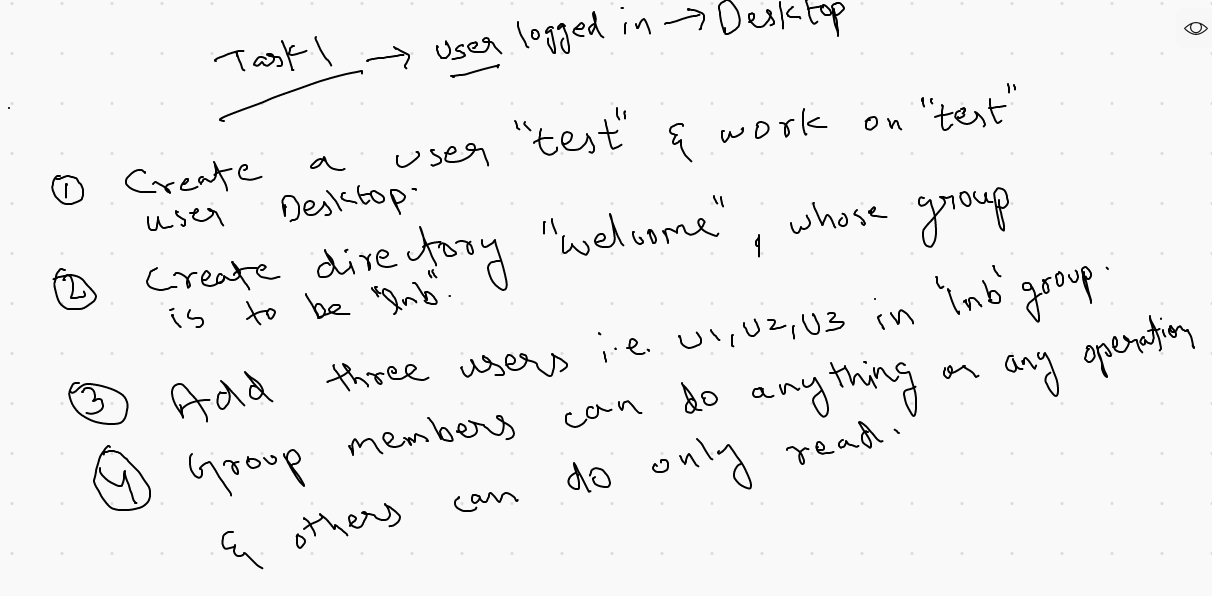 Task 1 → user logged in → Desktop
① Create a user "test" & work on "test"
user Desktop.
② Create directory "welcome", whose group
is to be "lnb".
③ Add three users i.e. U1, U2, U3 in 'lnb' group.
④ Group members can do anything or any operation
& others can do only read.